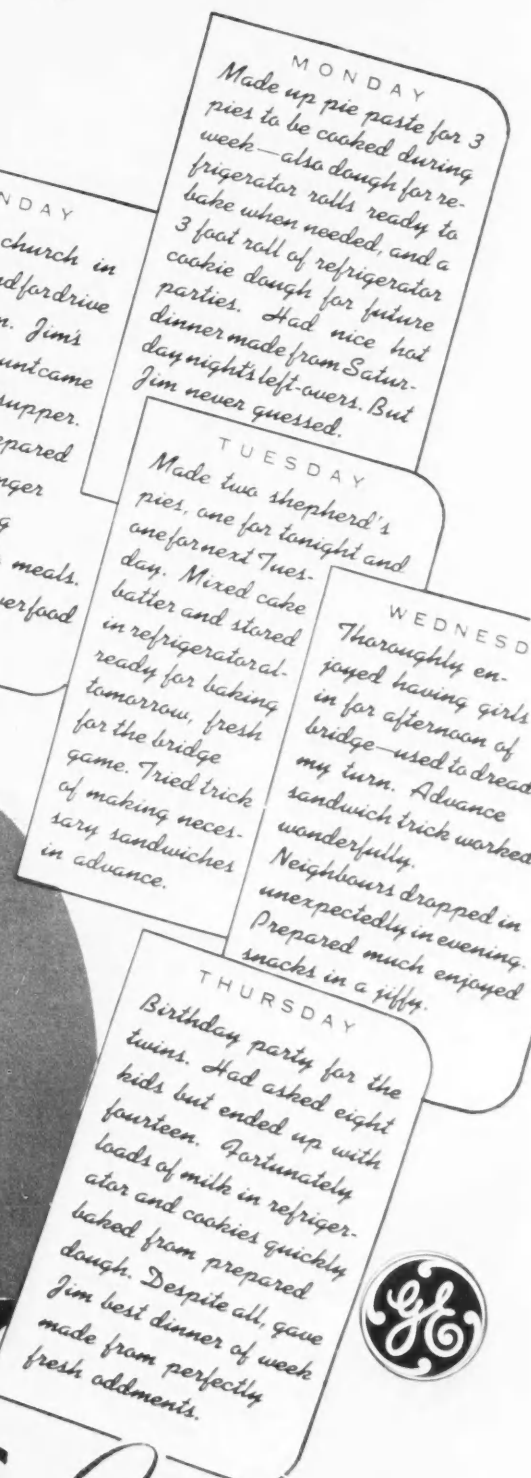 MONDAY
Made up pie paste for 3
pies to be cooked during
week—also dough for re-
frigerator rolls ready to
bake when needed, and a
3 foot roll of refrigerator
cookie dough for future
parties. Had nice hot
dinner made from Satur-
day night's left-overs. But
Jim never guessed.
NDAY
church in
d for drive
n. Jim's
unt came
supper.
epared
nger
g
meals.
verfood
TUESDAY
Made two shepherd's
pies, one for tonight and
one for next Tues-
day. Mixed cake
batter and stored
in refrigerator al-
ready for baking
tomorrow, fresh
for the bridge
game. Tried trick
of making neces-
sary sandwiches
in advance.
WEDNESD
Thoroughly en-
joyed having girls
in for afternoon of
bridge—used to dread
my turn. Advance
sandwich trick worked
wonderfully.
Neighbours dropped in
unexpectedly in evening.
Prepared much enjoyed
snacks in a jiffy.
THURSDAY
Birthday party for the
twins. Had asked eight
kids but ended up with
fourteen. Fortunately
loads of milk in refriger-
ator and cookies quickly
baked from prepared
dough. Despite all, gave
Jim best dinner of week
made from perfectly
fresh oddments.
GE